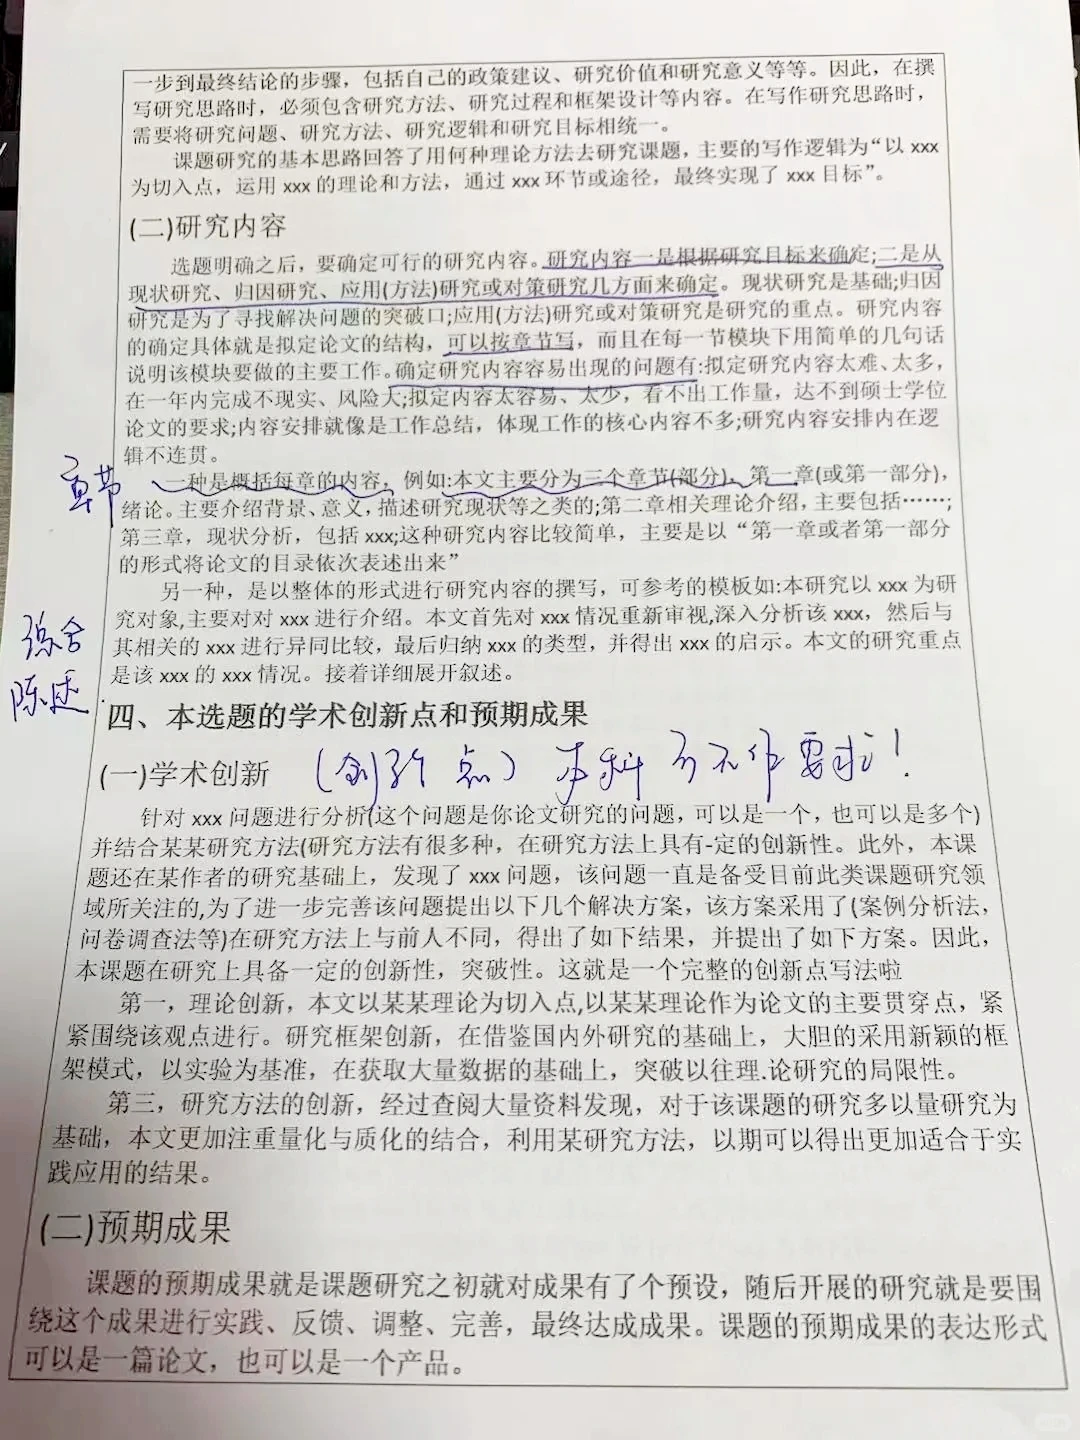 一步到最终结论的步骤，包括自己的政策建议、研究价值和研究意义等等。因此，在撰
写研究思路时，必须包含研究方法、研究过程和框架设计等内容。在写作研究思路时，
需要将研究问题、研究方法、研究逻辑和研究目标相统一。
课题研究的基本思路回答了用何种理论方法去研究课题，主要的写作逻辑为“以 xxx
为切入点，运用 xxx 的理论和方法，通过 xxx 环节或途径，最终实现了 xxx 目标”。
(二)研究内容
选题明确之后，要确定可行的研究内容。研究内容一是根据研究目标来确定;二是从
现状研究、归因研究、应用(方法)研究或对策研究几方面来确定。现状研究是基础;归因
研究是为了寻找解决问题的突破口;应用(方法)研究或对策研究是研究的重点。研究内容
的确定具体就是拟定论文的结构，可以按章节写，而且在每一节模块下用简单的几句话
说明该模块要做的主要工作。确定研究内容容易出现的问题有:拟定研究内容太难、太多，
在一年内完成不现实、风险大;拟定内容太容易、太少，看不出工作量，达不到硕士学位
论文的要求;内容安排就像是工作总结，体现工作的核心内容不多;研究内容安排内在逻
辑不连贯。
章节
一种是概括每章的内容，例如:本文主要分为三个章节(部分)、第一章(或第一部分)，
绪论。主要介绍背景、意义，描述研究现状等之类的;第二章相关理论介绍，主要包括……;
第三章，现状分析，包括 xxx;这种研究内容比较简单，主要是以“第一章或者第一部分
的形式将论文的目录依次表述出来”
另一种，是以整体的形式进行研究内容的撰写，可参考的模板如:本研究以 xxx 为研
究对象,主要对对 xxx 进行介绍。本文首先对 xxx 情况重新审视,深入分析该 xxx，然后与
其相关的 xxx 进行异同比较，最后归纳 xxx 的类型，并得出 xxx 的启示。本文的研究重点
是该 xxx 的 xxx 情况。接着详细展开叙述。
综合
陈述
四、本选题的学术创新点和预期成果
(一)学术创新 (创新点) 本科可不作要求！
针对 xxx 问题进行分析(这个问题是你论文研究的问题，可以是一个，也可以是多个)
并结合某某研究方法(研究方法有很多种，在研究方法上具有-定的创新性。此外，本课
题还在某作者的研究基础上，发现了 xxx 问题，该问题一直是备受目前此类课题研究领
域所关注的,为了进一步完善该问题提出以下几个解决方案，该方案采用了(案例分析法，
问卷调查法等)在研究方法上与前人不同，得出了如下结果，并提出了如下方案。因此，
本课题在研究上具备一定的创新性，突破性。这就是一个完整的创新点写法啦
第一，理论创新，本文以某某理论为切入点,以某某理论作为论文的主要贯穿点，紧
紧围绕该观点进行。研究框架创新，在借鉴国内外研究的基础上，大胆的采用新颖的框
架模式，以实验为基准，在获取大量数据的基础上，突破以往理.论研究的局限性。
第三，研究方法的创新，经过查阅大量资料发现，对于该课题的研究多以量研究为
基础，本文更加注重量化与质化的结合，利用某研究方法，以期可以得出更加适合于实
践应用的结果。
(二)预期成果
课题的预期成果就是课题研究之初就对成果有了个预设，随后开展的研究就是要围
绕这个成果进行实践、反馈、调整、完善，最终达成成果。课题的预期成果的表达形式
可以是一篇论文，也可以是一个产品。